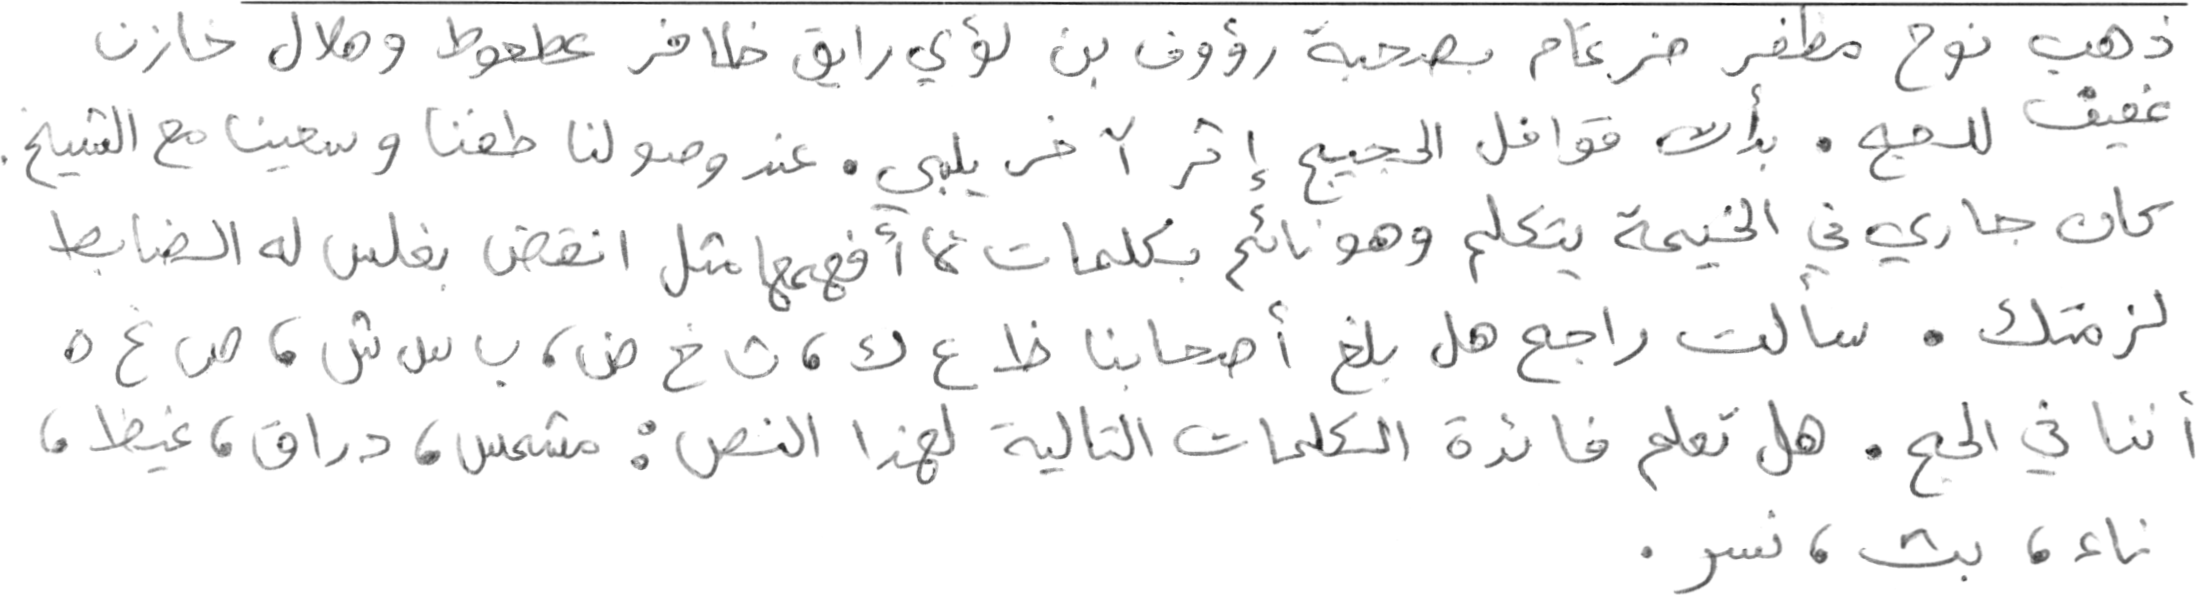 ذهب نوح مظفر ضرغام بصحبة رؤوف بن لؤي رايق ظافر عطعوط وهلال خازن
عفيف للحج . بدأت قوافل الحجيج إثر آخر يلبي . عند وصولنا طفنا وسعينا مع الشيخ .
كان جاري في الخيمة يتكلم وهو نائم بكلمات لا أفهمها مثل انقض بغلس له الضابط
لزمتك . سألت راجح هل بلغ أصحابنا ظ ع ك ، ث خ ض ، ب س ش ، ص غ ه
أننا في الحج . هل تعلم فائدة الكلمات التالية لهذا النص : مشمس ، دراق ، غيظ ،
ناء ، بث ، نسر .